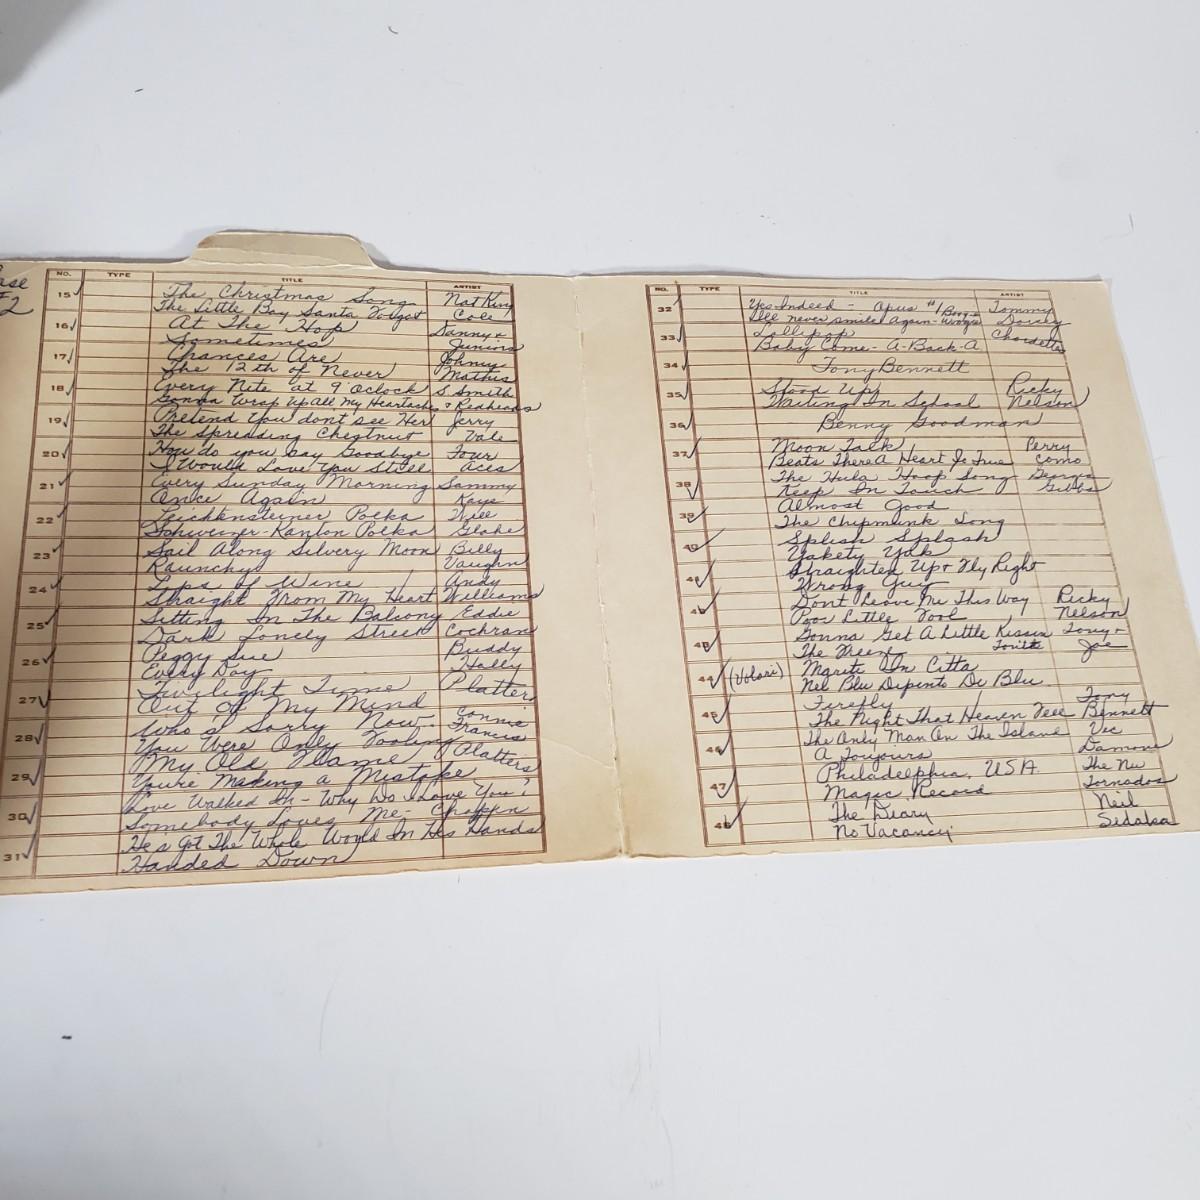 ase
#2
NO. TYPE TITLE ARTIST
15 The Christmas Song Nat King
The Little Boy Santa Forgot Cole
16 At The Hop Danny &
Sometimes Juniors
17 Chances Are Johnny
The 12th of Never Mathis
18 Every Nite at 9 O'clock S. Smith
Gonna Wrap Up All My Heartaches & Redheads
19 Pretend You don't see Her Jerry
The Spreading Chestnut Vale
20 How do you say Goodbye Four
I Would Love You Still Aces
21 Every Sunday Morning Sammy
Once Again Kaye
22 Leichtensteiner Polka Will
Schweizer-Kanton Polka Glahe
23 Sail Along Silvery Moon Billy
Raunchy Vaughn
24 Lips of Wine Andy
Straight From My Heart Williams
25 Sitting In The Balcony Eddie
Dark Lonely Street Cochran
26 Peggy Sue Buddy
Every Day Holly
27 Twilight Time Platters
Out Of My Mind
28 Who's Sorry Now Connie
You Were Only Fooling Francis
29 My Old Flame Platters
You're Making a Mistake
30 Love Walked In - Why Do I Love You?
Somebody Loves Me - Chopin
31 He's Got The Whole World In His Hands
Handed Down
NO. TYPE TITLE ARTIST
32 Yes Indeed - Opus #1 Boogie Tommy
I'll never smile Again - Woogie Dorsey
33 Lollipop Chordettes
Baby Come-A-Back-A
34 Tony Bennett
35 Stood Up Ricky
Waiting In School Nelson
36 Benny Goodman
37 Moon Talk Perry
Beats There A Heart So True Como
38 The Hula Hoop Song Georgia
Keep In Touch Gibbs
39 Almost Good
The Chipmunk Song
40 Splish Splash
Yakety Yak
41 Straighten Up & Fly Right
Wrong Guy
42 Don't Leave Me This Way Ricky
Poor Little Fool Nelson
43 Gonna Get A Little Kissin Tonite Tony &
The Freeze Joe
44 (Volari) Marita In Citta
Nel Blu Dipento De Blu
45 Firefly Tony
The Night That Heaven Fell Bennett
46 The Only Man On The Island Vic
A Toujours Damone
47 Philadelphia, USA. The Nu
Magic Record Tornados
48 The Diary Neil
No Vacancy Sedaka